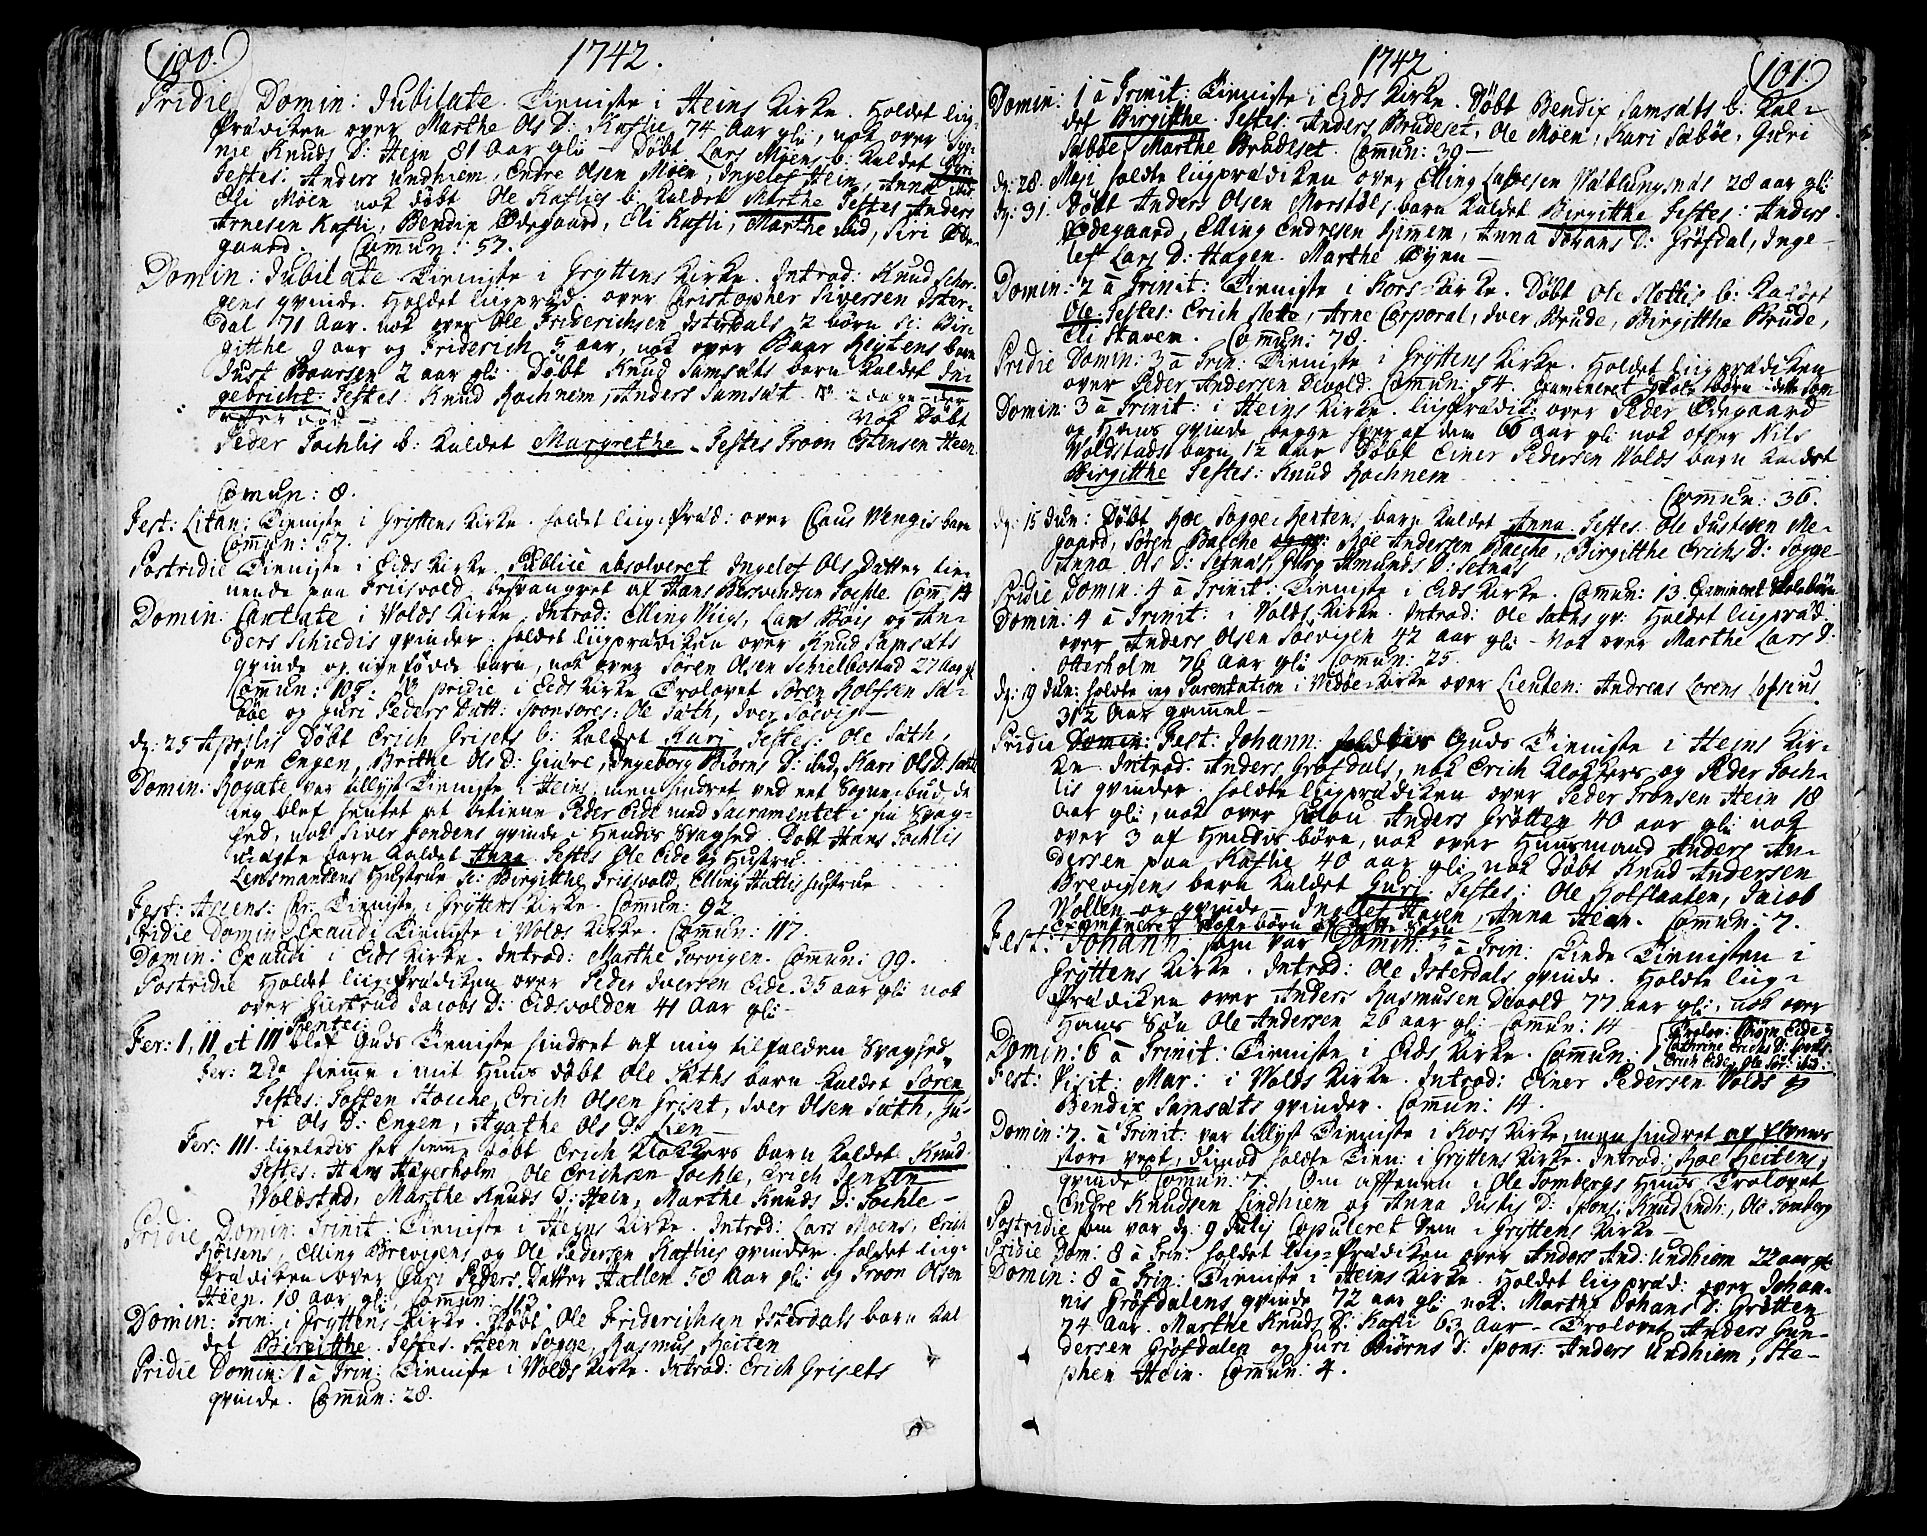 100.
1742.
Pridie Domin: Jubilate. Tieniste i Heins Kirke. Holdet liig-
Prædiken over Marthe Ols D: Kastlie 74 Aar gli, nok over
Knuds D: Hein 81 Aar gli – Døbt Lars Moens b: kaldet
Testes: Anders Undhiem, Endre Olsen Moen, Ingelef Hein, Anna ibid
Eli Moen nok døbt Ole Kastlies b: kaldet Marthe Testes Anders
Arnesen Kastli, Bendix Ødegaard, Eli Kastli, Marthe ibid, Siri Øde-
gaard. Comun: 57.
Domin: Jubilate Tieniste i Gryttens Kirke. Introd: Knud
gens qvinde. Holdet liigpræd: over Christopher Siversen Ister-
dal 71 Aar. nok over Ole Friderichsen Isterdals 2 børn sc: Bir-
gitthe 9 aar og Friderich 5 aar, nok over Baar Reitens barn
Just Baarsen 2 aar gli. Døbt Knud Samsæts barn kaldet In-
gebricht. Testes: Knud Kochnem, Anders Samsæt.
Nok Døbt
Peder Sochlis b: kaldet Margrethe. Testes Troon Estensen Heen
Comun: 8.
Fest: Litan: Tieniste i Gryttens Kirke. Holdet liig-Præd: over Claus Wengis barn
Comun: 57.
Postridie Tieniste i Eids Kirke. Publice absolveret Ingelef Ols Datter tie-
nende paa Friisvold besvangret af Hans Sochle. Com: 14
Domin: Cantate i Volds Kirke. Introd: Elling Wigs, Lars Bøis og An-
ders Schiedis qvinder. Holdet liigprædiken over Knud Samsæts
qvinde og barn, nok over Søren Olsen Schielbostad 27 Aar gl
Comun: 105. pridie i Eids Kirke Trolovet Søren Rolfsen Sæ-
bøe og Guri Peders Datt: Sponsores: Ole Sæth, Iver Søevig –
dg: 25 Aprilis Døbt Erich Grisets b: kaldet Kari Testes: Ole Sæth,
Jon Engen, Brithe Ols D: Ingeborg Biørns D: ibid, Kari Ols D: Sæth
Domin: Rogate, var tillyst Tieniste i Heins, men hindret ved et Sognebud, da
ieg blef hentet at betiene Peder Eide med Sacramentet i sin Svag-
hed, nok Siver qvinde i Hendis Svaghed. Døbt Hans Sochlis
u-ægte barn kaldet Anna. Testes Ole Eide og Hustru
Lensmandens Hustrue sc: Birgitthe Friisvold, Elling Hattis hustrue
Fest: Ascens: Chr: Tieniste i Gryttens Kirke. Comun: 92.
Pridie Domin: Exaudi Tieniste i Volds Kirke. Comun: 117.
Domin: Exaudi i Eids Kirke. Introd: Marthe Torvigen. Comun: 99.
Postridie Holdet liig-Prædiken over Peder Iversen Eide 35 aar gli nok
over Giertrud Jacobs D: Eidsvolden 41 Aar gli –
Pentec:
Fer: I, II et III blef Guds Tieniste hindret af mig tilfalden Svaghed
Fer: 2da hiemme i mit Huus døbt Ole Sæths barn kaldet Søren
Testes: Tosten Hoche, Erich Olsen Griset, Iver Olsen Sæth, Gu-
ri Ols D: Engen, Agathe Ols D: Leen
Fer: III. ligeledis her hieme døbt Erich Klokkers barn kaldet Knud
Testes: Hans Hagerholm, Ole Erichsen Sochle, Erich Jensen
Voldstad, Marthe Knuds D: Hein, Marthe Knuds D: Sochle –
Pridie Domin: Trinit: Tieniste i Heins Kirke. Introd: Lars Moens, Erich
Elling Brevigens og Ole Pedersen Kastlies qvinder. Holdet liig-
Prædiken over Guri Peders Datter Hallen 58 Aar gli og Troon Olsen
Heen 18 aar gli. Comun: 113.
Domin: Trin: i Gryttens Kirke. Døbt Ole Friderichsen Isterdals barn kal
det Birgitthe. Testes. Steen Sogge, Rasmus Reiten
Pridie Domin: 1 a Trin: Tieniste i Volds Kirke. Introd: Erich Grisets
qvinde. Comun: 28.
1742
101.
Domin: 1 a Trinit: Tieniste i Eids Kirke. Døbt Bendix Samsæts b: kal-
det Birgitthe. Testes: Anders Brudeset, Ole Moen, Kari Sæbøe, Guri
Sæbøe, Marthe Brudeset. Comun: 39 –
dg: 28 Maji holdte liigprædiken over Elling Lassesen Wæblungsnæs 28 aar gli
dg: 31. Døbt Anders Olsen Morstøls barn kaldet Birgitthe Testes: Anders
Ødegaard, Elling Endresen Hiemem, Anna Johans D: Grøfdal, Inge-
lef Lars D: Hagen. Marthe Øyen –
Domin: 2 a Trinit: Tieniste i Kors-Kirke. Døbt Ole Slettis b: kaldet
Ole. Testes: Erich Slette, Arne Corporal, Iver Brude, Birgitthe Brude,
Eli Staven. Comun: 78.
Pridie Domin: 3 a Trin: Tieniste i Gryttens Kirke. Holdet liigprædiken
over Peder Andersen Devold. Comun: 54. Examineret Skole børn
Domin: 3 a Trinit: i Heins Kirke. liigPrædik: over Peder Ødegaard
og Hans qvinde begge hver af dem 66 Aar gli nok ofver Nils
Voldstads barn 12 Aar. Døbt Einer Pedersen Volds barn kaldet
Birgitthe Testes: Knud Kochnem
Comun: 36.
dg: 15 Jun: Døbt Roe Sogge-Rentens barn kaldet Anna. Testes. Ole Justesen Me-
gaard, Søren Bache Roe Andersen Bache, Birgitthe Erichs D: Sogge
Anna Ols D: Setnæs, Amunds D: Setnæs
Pridie Domin: 4 a Trinit: Tieniste i Eids Kirke. Comun: 13. Examineret Skolebørn
Domin: 4 a Trinit: i Volds Kirke. Introd: Ole Sæths qv: Holdet liigpræd:
over Anders Olsen Soevigen 42 aar gli – Nok over Marthe Lars D:
Otterholm 76 Aar gli Comun: 25.
dg: 19 Jun: holdte ieg Parentation i Vedøe-Kirke over Lieuten: Andreas Lorens Lossius
31½ Aar gammel –
Pridie Fest: Johann: Guds Tieniste i Heins Kir-
ke Introd: Anders Grøfdals, nok Erich Klokkers og Peder Soch-
lis qvinder. Holdte liigprædiken over Peder Tronsen Hein 18
Aar gli, nok over Anders Grøtten 40 aar gli nok
over 3 af Hendis børn, nok over Huusmand Anders An-
dersen paa Kastlie 40 aar gli nok Døbt Knud Andersen
Brevigens barn kaldet Guri. Testes: Ole Holstaaten, Jacob
Vollen og qvinde – Ingelef Hagen, Anna Hein. Comun: 7.
Examineret Skolebørn
Fest: Johann: som var Domin: 5 a Trin: skede Tienisten i
Gryttens Kirke. Introd: Ole Isterdals qvinde. Holdte liig-
Prædiken over Anders Rasmusen Devold 77 aar gli, nok over
Hans Søn Ole Andersen 26 aar gl: Comun: 14
Domin: 6 a Trinit: Tieniste i Eids Kirke. Comun:
Trolov: Biørn Eide
Cathrine Erichs D:
Erich Eide, Ole ibid:
Fest: Visit: Mar: i Volds Kirke. Introd: Einer Pedersen Volds og
Bendix Samsæts qvinder. Comun: 14.
Domin: 7. a Trinit: var tillyst Tieniste i Kors Kirke, men hindret af Elvens
store vext, dimod holdte Tien: i Gryttens Kirke. Introd: Roe Reitens
qvinde Comun: 7. Om aftenen i Ole Sombergs Huus Trolovet
Endre Knudsen Lindhiem og Anna Justis D: Spons: Knud Lindh:, Ole Somberg
Postridie som var dg: 9 Julij Copuleret dem i Gryttens Kirke –
Pridie Dom: 8 a Trin: Holdet Liig-Prædiken over Anders And: Undhiem 22 aar gl:
Domin: 8 a Trin: Tieniste i Heins Kirke. Holdet liigpræd: over Johan-
nis Grøfdalens qvinde 72 aar gli nok. Marthe Johans D: Grøtten
74 Aar. Marthe Knuds D: Kastli 63 Aar – Trolovet Anders Gun-
dersen Grøfdalen og Guri Biørns D: Spons: Anders Undhiem, Ste-
phen Hein. Comun: 4.